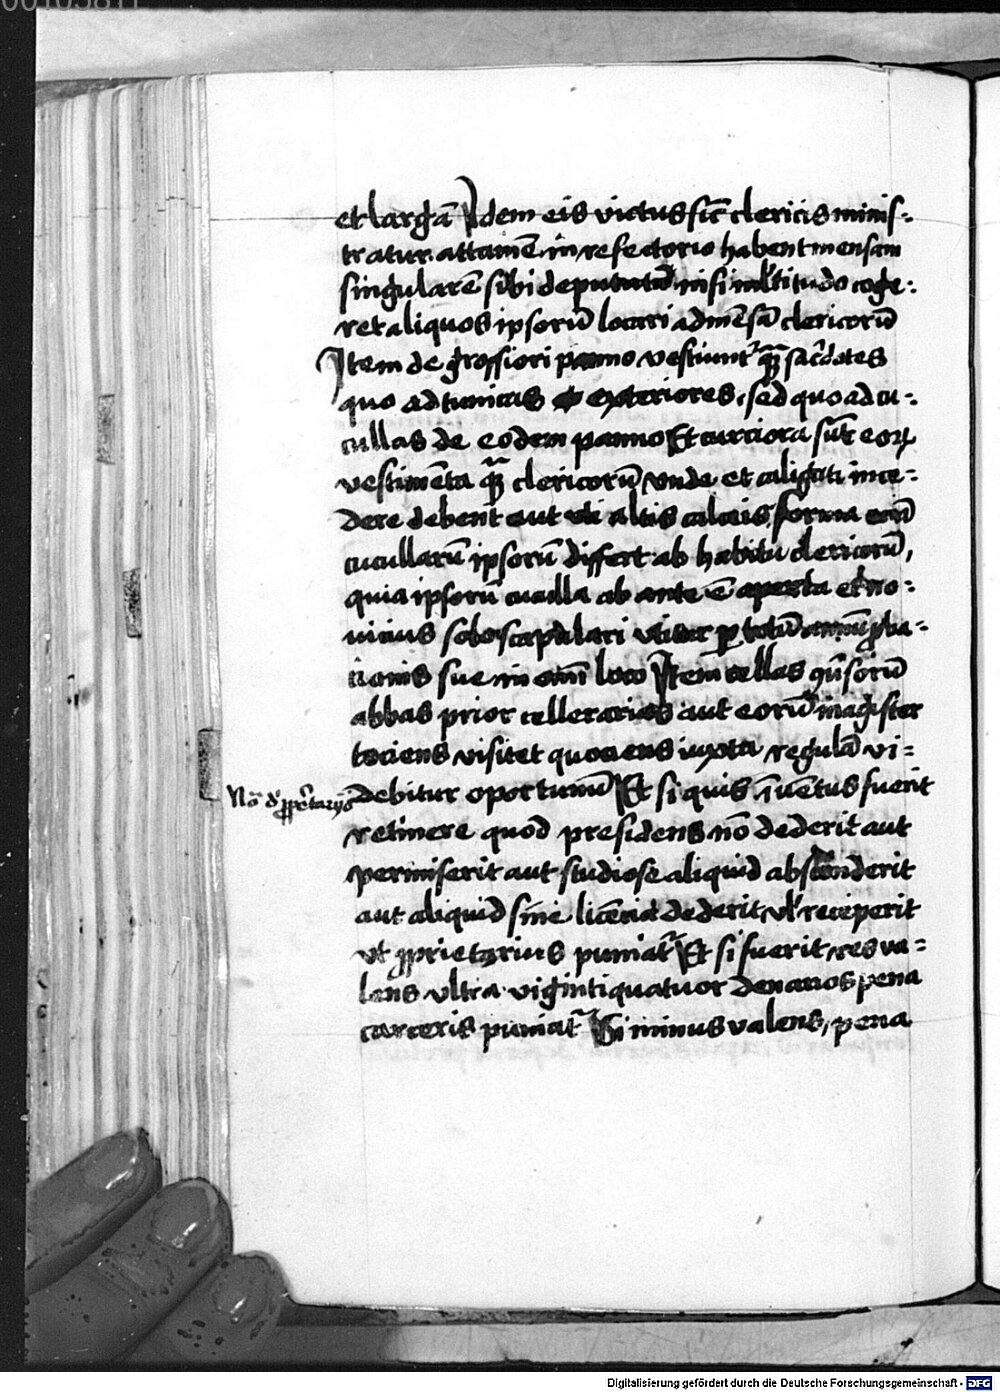 00103811
et largā Idem eis victus sic̄ clericis minis-
tratur. attamē in refectorio habent mensam
singularē sibi deputatā nisi multitudo coge-
ret aliquos ipsorū locari ad mēsā clericorū
Item de grossiori panno vestiunt᷑ quā sac̄dotes
quo ad tunicas exteriores, sed quo ad cu-
cullas de eodem panno Et curciora sūt eoꝝ
vestimēta quā clericorū vnde et caligati ince-
dere debent aut vti altis calceis, forma eciā
cucullarū ipsorū differt ab habitu clericorū,
quia ipsorū cuculla ab ante ē aperta et no-
uicius solo scapulari vtitur ꝑ totū annū ꝓba-
tionis sue in omī loco Item cellas ꝯūsorū
abbas prior cellerarius aut eorū magister
tociens visitet quociens iuxta regulā vi-
Nō de ꝓprietarijs
debitur oportunū Et si quis īuētus fuerit
retinere quod presidens nō dederit aut
permiserit aut studiose aliquid absconderit
aut aliquid sine licēcia dederit vl̕ receperit
vt ꝓprietarius puniat᷑ Et si fuerit res va-
lens vltra viginti quatuor denarios pena
carceris puniat᷑ Si minus valens, pena
Digitalisierung gefördert durch die Deutsche Forschungsgemeinschaft - DFG